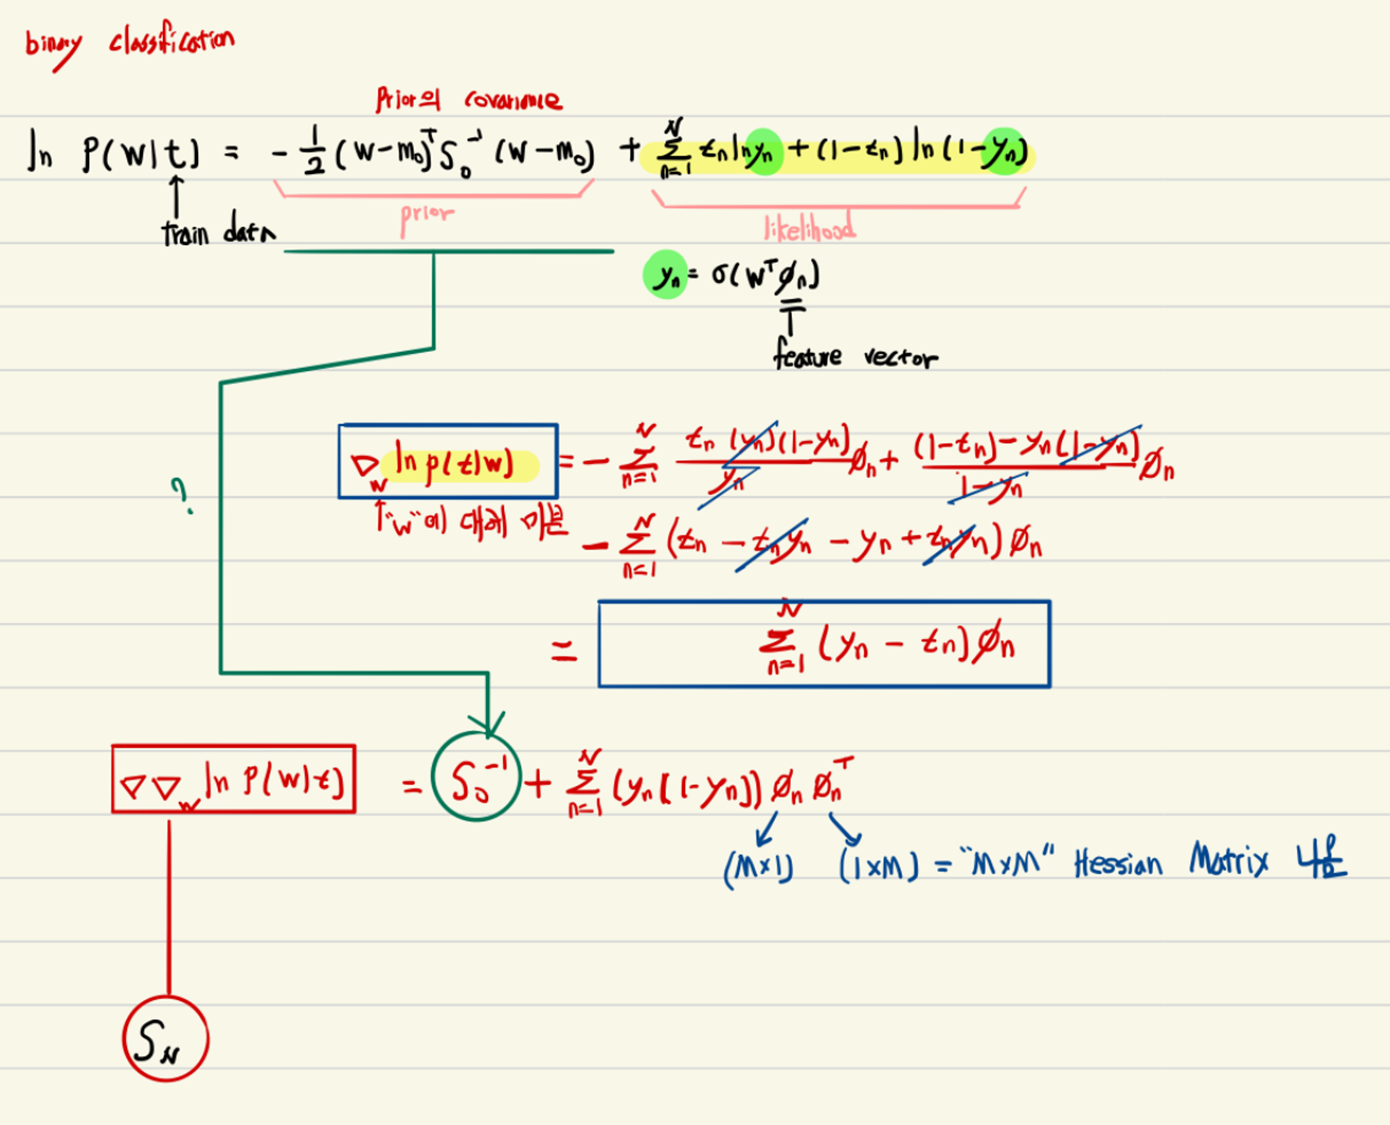 binary classification
Prior의 covariance
ln P(w|t) = -1/2 (w-m₀)ᵀS₀⁻¹(w-m₀) + Σₙ₌₁ᴺ tₙ ln yₙ + (1-tₙ) ln (1-yₙ)
prior
likelihood
train data
yₙ = σ(wᵀϕₙ)
feature vector
∇w ln p(t|w) = - Σₙ₌₁ᴺ tₙ(yₙ)(1-yₙ)/yₙ ϕₙ + (1-tₙ)-yₙ(1-yₙ)/1-yₙ ϕₙ
?
"w"에 대해 미분
- Σₙ₌₁ᴺ (tₙ - tₙyₙ - yₙ + tₙyₙ) ϕₙ
= Σₙ₌₁ᴺ (yₙ - tₙ)ϕₙ
∇∇w ln P(w|t) = S₀⁻¹ + Σₙ₌₁ᴺ (yₙ(1-yₙ)) ϕₙ ϕₙᵀ
(M×1) (1×M) = "M×M" Hessian Matrix
S_N